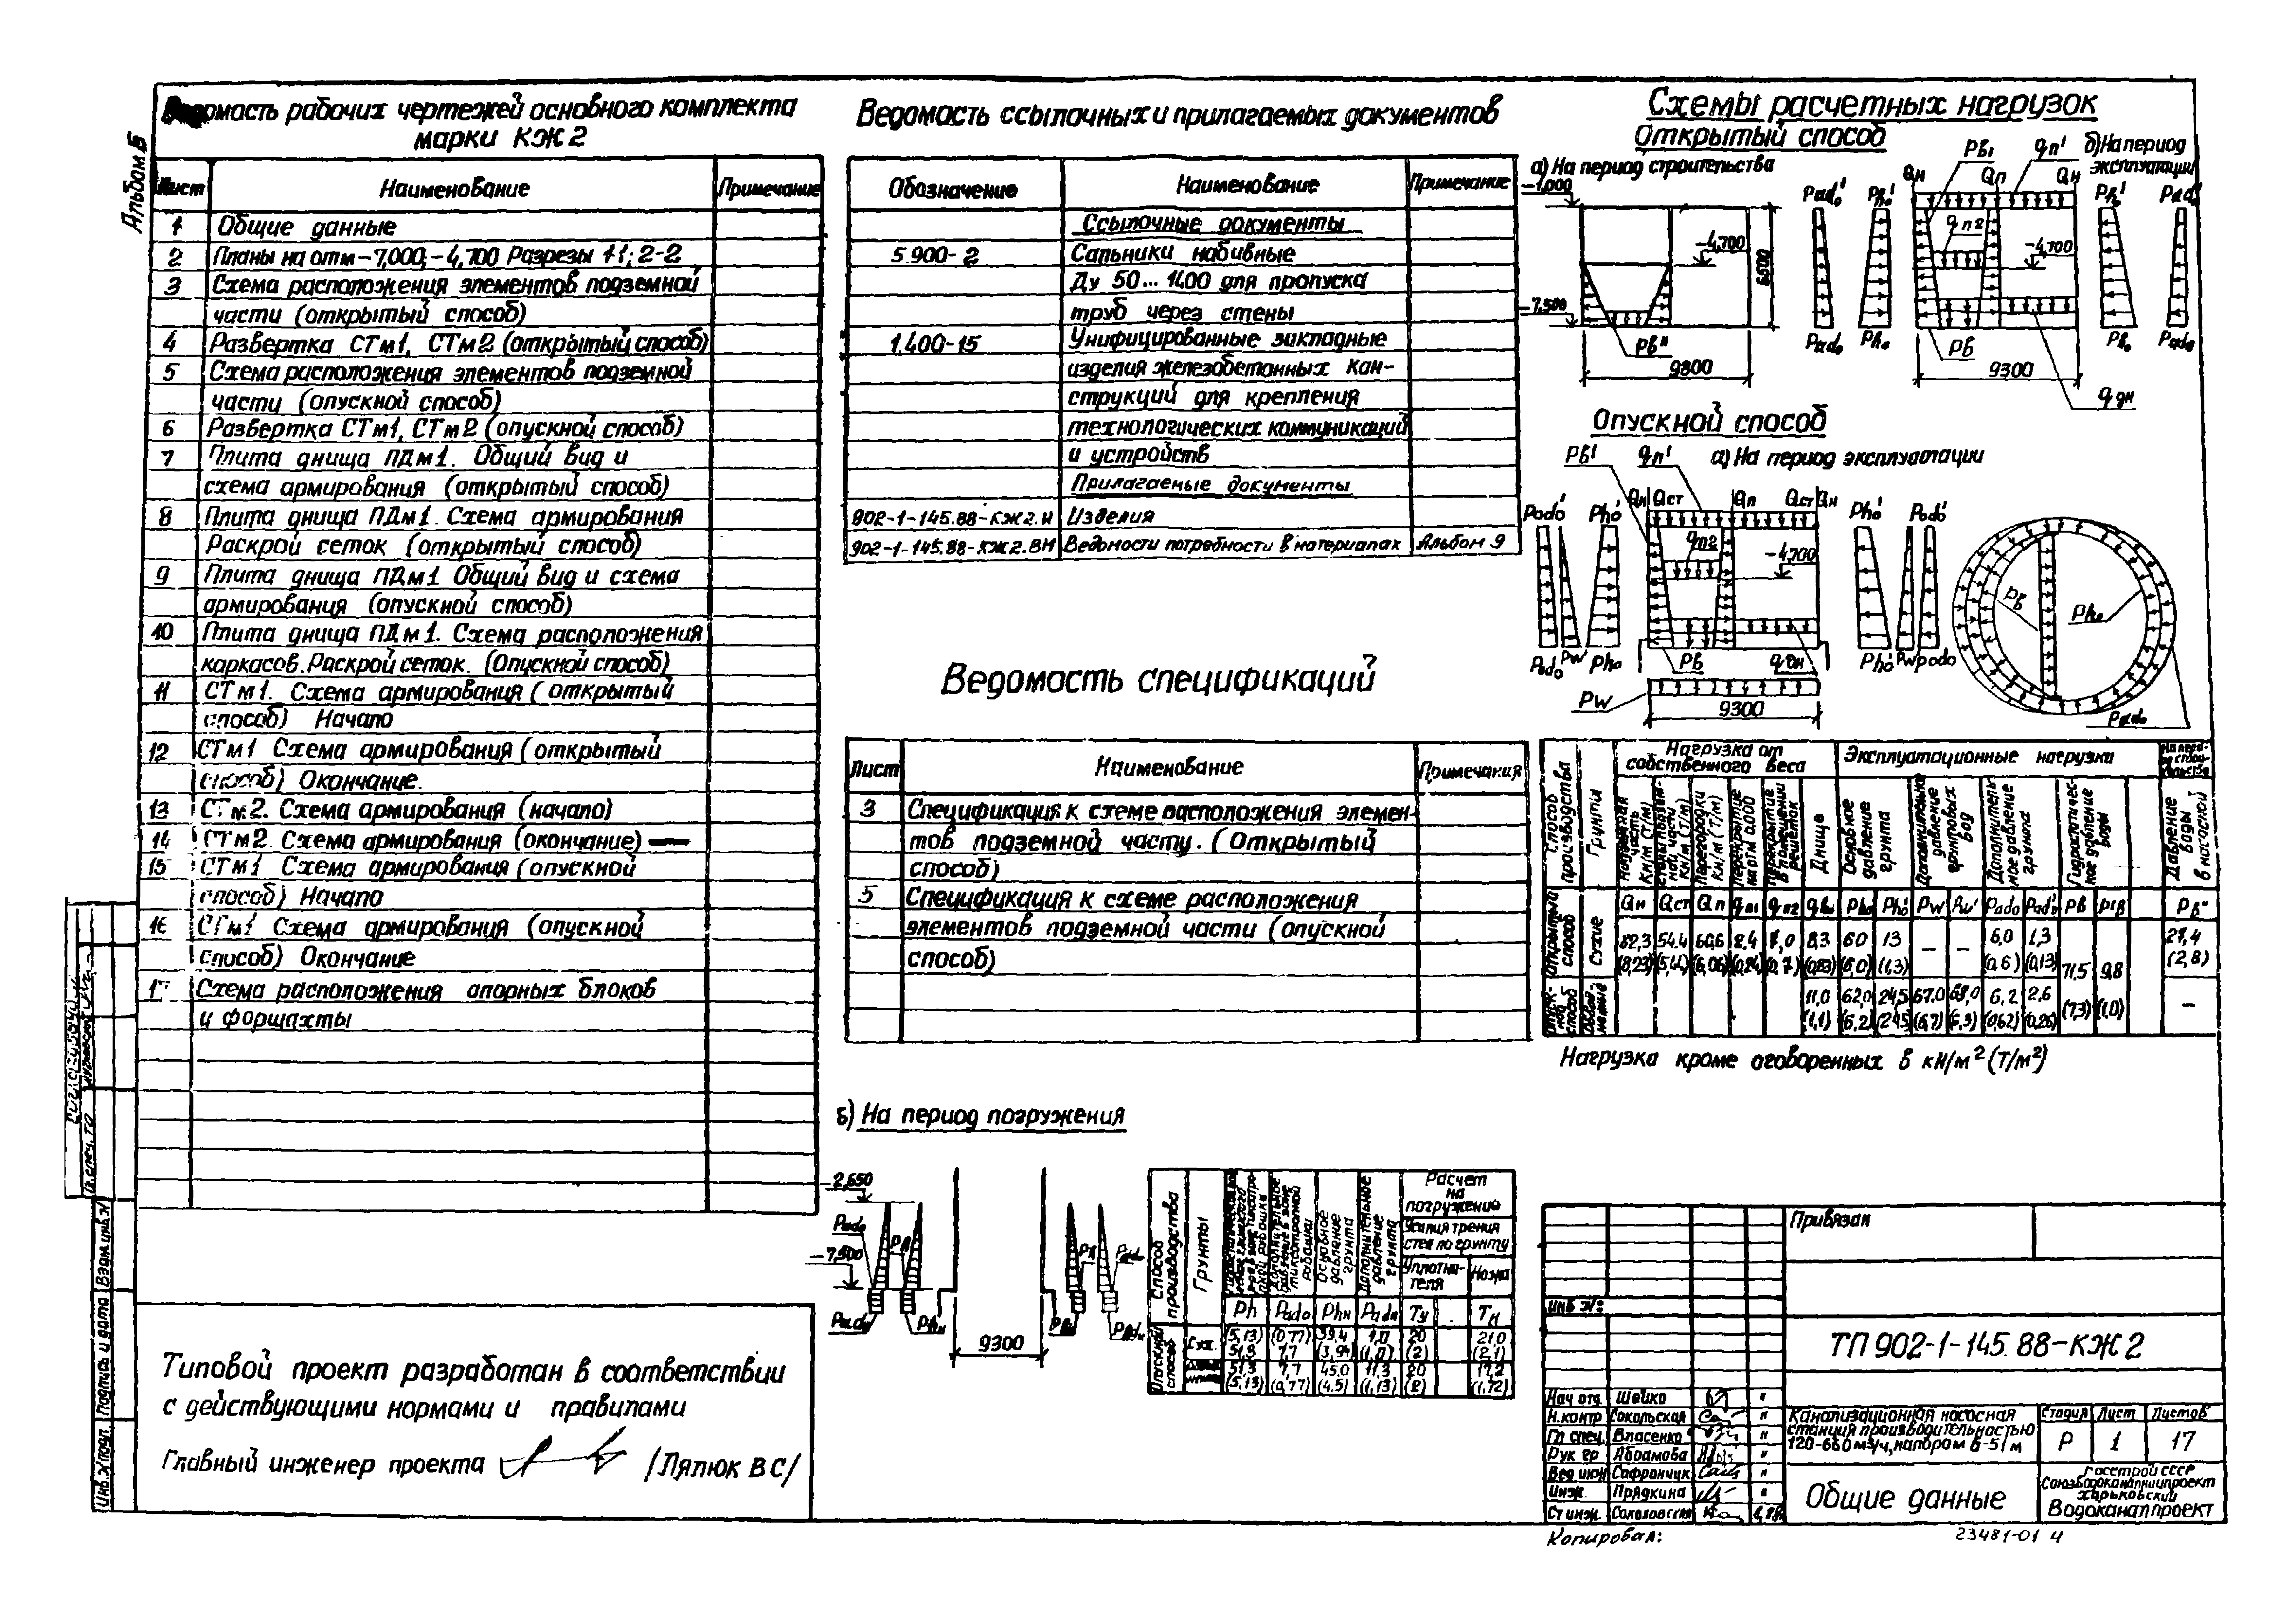 Альбом 5
Ведомость рабочих чертежей основного комплекта
марки КЖ2
Лист Наименование Примечание
1 Общие данные
2 Планы на отм -7,000, -4,700 Разрезы 1-1; 2-2
3 Схема расположения элементов подземной
части (открытый способ)
4 Развертка СТм1, СТм2 (открытый способ)
5 Схема расположения элементов подземной
части (опускной способ)
6 Развертка СТм1, СТм2 (опускной способ)
7 Плита днища ПДм1. Общий вид и
схема армирования (открытый способ)
8 Плита днища ПДм1. Схема армирования
Раскрой сеток (открытый способ)
9 Плита днища ПДм1 Общий вид и схема
армирования (опускной способ)
10 Плита днища ПДм1. Схема расположения
каркасов. Раскрой сеток. (Опускной способ)
11 СТм1. Схема армирования (открытый
способ) Начало
12 СТм1 Схема армирования (открытый
способ) Окончание.
13 СТм2. Схема армирования (начало)
14 СТм2. Схема армирования (окончание)
15 СТм1 Схема армирования (опускной
способ) Начало
16 СТм1 Схема армирования (опускной
способ) Окончание
17 Схема расположения опорных блоков
и форшахты
Типовой проект разработан в соответствии
с действующими нормами и правилами
Главный инженер проекта /Лялюк ВС/
Ведомость ссылочных и прилагаемых документов
Обозначение Наименование Примечание
Ссылочные документы
5.900-2 Сальники набивные
Ду 50...1400 для пропуска
труб через стены
1.400-15 Унифицированные закладные
изделия железобетонных кон-
струкций для крепления
технологических коммуникаций
и устройств
Прилагаемые документы
902-1-145.88-КЖ2.И Изделия
902-1-145.88-КЖ2.ВМ Ведомости потребности в материалах Альбом 9
Ведомость спецификаций
Лист Наименование Примечания
3 Спецификация к схеме расположения элемен-
тов подземной часту. (Открытый
способ)
5 Спецификация к схеме расположения
элементов подземной части (опускной
способ)
б) На период погружения
-2,650
Pado
-7,500
9300
Способ производства
Грунты
Основное давление грунта
Дополнительное давление грунта
Расчет
на
погружений
Усилия трения
стен по грунту
Уплотни-
теля
Ножа
Ph Pado Phн Padн Ту Тн
Опускной способ
Сух.
(5,13) (0,77) 39,4 1,0 20 21,0
51,3 7,7 (3,94) (1,0) (2) (2,1)
51,3 7,7 45,0 11,3 20 17,2
(5,13) (0,77) (4,5) (1,13) (2) (1,72)
Схемы расчетных нагрузок
Открытый способ
а) На период строительства
-1,000
-4,700
6500
-7,500
Рв"
9800
б) На период
эксплуатации
Рв1 qп1
Qн Qп Qн
qп2
-4,700
Рв
9300
qдн
Опускной способ
а) На период эксплуатации
Рв1 qп1
Qн Qст Qп Qст Qн
qп2
-4,700
Рв qдн
Pw
9300
Рв
Phо
Padо
Нагрузка от
собственного веса
Эксплуатационные нагрузки
Способ производства
Грунты
Наружная часть Кн/м (Т/м)
Перегородки Кн/м (Т/м)
Перекрытие на отм 0,000
Перекрытие в помещении решеток
Днище
Основное давление грунта
Дополнительное давление грунтовых вод
Дополнитель-ное давление грунта
Гидростатичес-кое давление воды
Давление воды в насосной
Qн Qст Qп qп1 qп2 Phо Phо' Pw Pw' Padо Padо' Рв Рв"
Открытый способ
Сухие
82,3 54.4 60,6 2.4 7,0 8,3 60 13 — — 6,0 1,3 27,4
(8,23) (5,44) (6,06) (0,24) (0,7) (0,83) (6,0) (1,3) (0,6) (0,13) (2,8)
71,5 9,8
(7,3) (1,0)
Опуск-ной способ
11,0 62,0 24,5 67.0 63,0 6,2 2,6 —
(1,1) (6,2) (2,45) (6,7) (6,3) (0,62) (0,26)
Нагрузка кроме оговоренных в кН/м² (Т/м²)
Привязан
Инв №:
ТП 902-1-145.88-КЖ2
Нач отд. Шейко "
Н.контр Сокольская "
Гл спец. Власенко "
Рук гр Абрамова "
Вед инж Сафрончик "
Инж. Прядкина "
Ст инж. Соколовская
Канализационная насосная
станция производительностью
120-660 м³/ч, напором 6-51 м
Стадия Лист Листов
Р 1 17
Общие данные
Госстрой СССР
Союзводоканалниипроект
Харьковский
Водоканалпроект
Копировал:
23481-01 4
Гл. спец. ТО
Инв. № подл. Подпись и дата Взам. инв. №